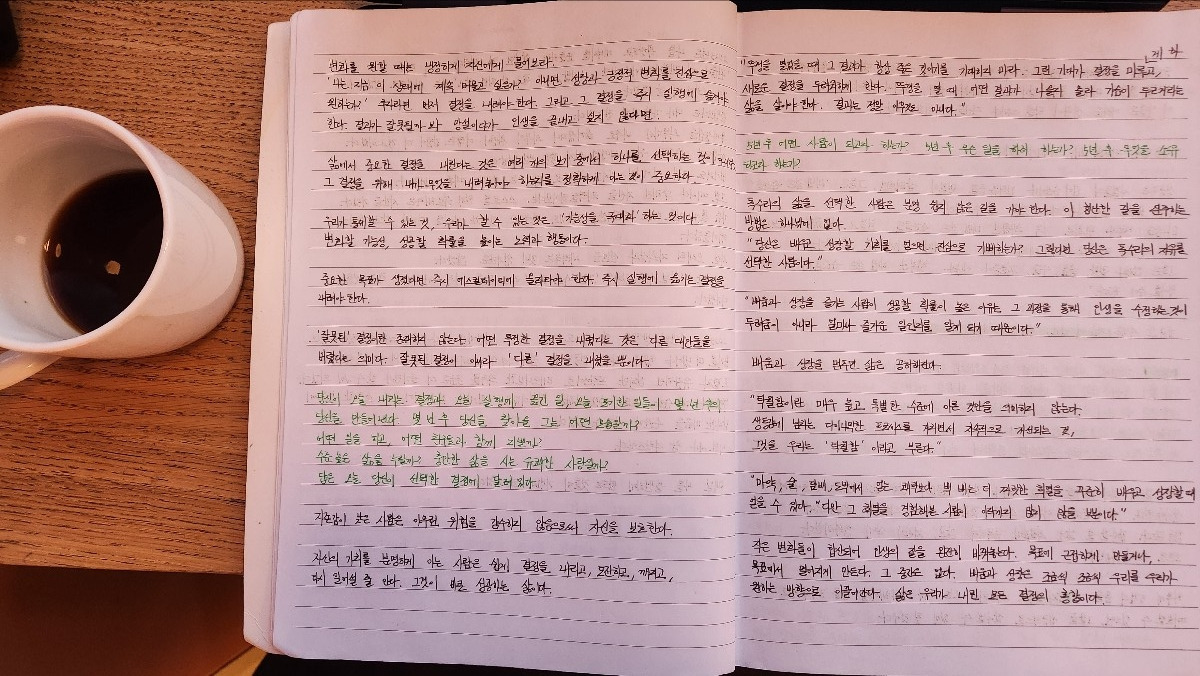 변화를 원할 때는 냉정하게 자신에게 물어보라.
'나는 지금 이 상태에 계속 머물고 싶은가? 아니면 성장과 긍정적 변화를 진심으로
원하는가?' 우리라면 먼저 결정을 내려야 한다. 그리고 그 결정을 즉시 실행에 옮겨야
한다. 결과가 잘못될까 봐 망설이다가 인생을 끝내고 싶지 않다면.
삶에서 중요한 결정을 내린다는 것은 여러 개의 보기 중에서 하나를 선택하는 것이
그 결정을 위해 내가 무엇을 내려놓아야 하는지를 정확하게 아는 것이 중요하다.
우리가 통제할 수 있는 것, 우리가 할 수 있는 것은 '가능성을 주머와' 하는 것이다.
변화할 가능성, 성공할 확률을 높이는 노력과 행동이다.
중요한 목표가 생겼다면 즉시 에스컬레이터에 올라타야 한다. 즉시 실행에 옮기는 결정을
내려야 한다.
'잘못된' 결정이란 존재하지 않는다. 어떤 특정한 결정을 내렸다는 것은 다른 대안들을
버렸다는 의미다. 잘못된 결정이 아니라 '다른' 결정을 내렸을 뿐이다.
당신이 오늘 내리는 결정과 오늘 실행에 옮긴 일, 오늘 포기한 일들이 몇 년 후의
당신을 만들어낸다. 몇 년 후 당신을 찾아올 그는 어떤 모습일까?
어떤 일을 하고, 어떤 친구들과 함께 기쁠까?
수준 높은 삶을 누릴까? 충만한 삶을 사는 유쾌한 사람일까?
답은 오늘 당신이 선택한 결정에 달려 있다.
자존감이 낮은 사람은 아무런 위험을 감수하지 않음으로써 자신을 보호한다.
자신의 가치를 분명하게 아는 사람은 쉽게 결정을 내리고, 도전하고, 깨지고,
다시 일어설 줄 안다. 그것이 바로 성공하는 삶이다.
"뚜껑을 열었을 때 그 결과가 항상 좋은 것이기를 기대하지 마라. 그런 기대가 결정을 미루고,
새로운 결정을 두려워하게 한다. 뚜껑을 열 때 어떤 결과가 나올지 몰라 가슴이 두근거리는
삶을 살아야 한다. 결과는 정말 아무것도 아니다."
5년 후 어떤 사람이 되고자 하는가? 5년 후 무슨 일을 하려 하는가? 5년 후 무엇을 소유
하고자 하는가?
독수리의 삶을 선택한 사람은 분명 쉽지 않은 길을 가야 한다. 이 험난한 길을 완주하는
방법은 하나밖에 없다.
"당신은 배우고 성장할 기회를 얻으면 진심으로 기뻐하는가? 그렇다면 당신은 독수리의 자유를
선택한 사람이다."
"배움과 성장을 즐기는 사람이 성공할 확률이 높은 이유는 그 과정을 통해 인생을 수정하는 것이
두려움이 아니라 얼마나 즐거운 일인지를 알게 되기 때문이다."
배움과 성장을 멈추면 삶은 공허해진다.
"탁월함이란 매우 높고 특별한 수준에 이른 것만을 의미하지 않는다.
생동감이 넘치는 다이나믹한 프로세스를 거치면서 지속적으로 개선되는 것,
그것을 우리는 '탁월함'이라고 부른다."
"마약, 술, 담배, 도박에서 얻는 쾌락보다 백 배는 더 짜릿한 희열을 꾸준히 배우고 성장할 때
얻을 수 있다." "다만 그 희열을 경험해본 사람이 아직까지 많지 않을 뿐이다."
작은 변화들이 합산되어 인생의 길을 완전히 바꿔놓는다. 목표에 근접하게 만들거나,
목표에서 멀어지게 만든다. 그 중간은 없다. 배움과 성장은 조금씩 조금씩 우리를 우리가
원하는 방향으로 이끌어간다. 삶은 우리가 내린 모든 결정의 총합이다.